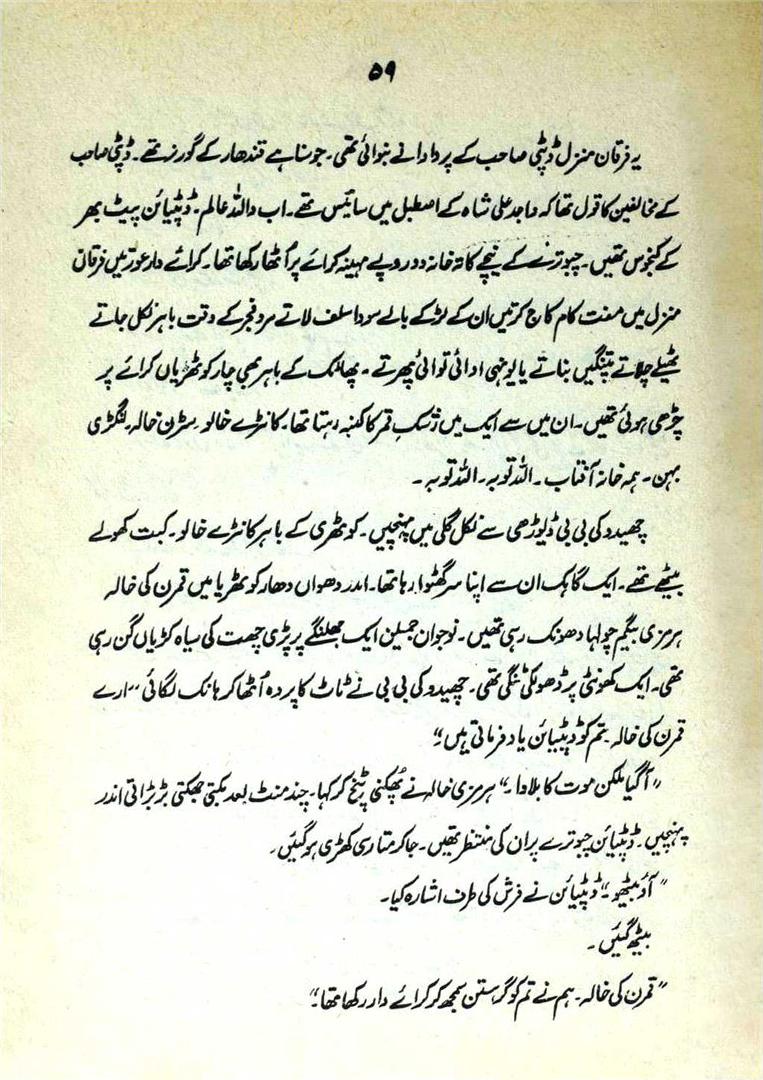 ۵۹
یہ فرقان منزل ڈپٹی صاحب کے پردادا نے بنوائی تھی۔ جو سنا ہے قندھار کے گورنر تھے۔ ڈپٹی صاحب
کے مخالفین کا قول تھا کہ واجد علی شاہ کے اصطبل میں سائیس تھے۔ اب واللہ عالم۔ ڈپٹیائن پیٹ بھر
کے کنجوس تھیں۔ چبوترے کے نیچے کا تہ خانہ دو روپے مہینہ کرائے پر اُٹھا رکھا تھا۔ کرائے دار عورتیں فرقان
منزل میں مفت کام کاج کرتیں ان کے لڑکے بالے سودا سلف لاتے مرد فجر کے وقت باہر نکل جاتے
ٹھیلے چلاتے پتنگیں بناتے یا یونہی ادائی توائی پھرتے۔ پھاٹک کے باہر بھی چار کوٹھڑیاں کرائے پر
چڑھی ہوئی تھیں۔ ان میں سے ایک میں رشکِ قمر کا کنبہ رہتا تھا۔ کانڑے خالو۔ سڑن خالہ۔ لنگڑی
بہن۔ ہمہ خانہ آفتاب۔ اللہ توبہ۔ اللہ توبہ۔
چھیدو کی بی بی ڈیوڑھی سے نکل گلی میں پہنچیں۔ کوٹھری کے باہر کانڑے خالو۔ کبت کھولے
بیٹھے تھے۔ ایک گاہک ان سے اپنا سر گھٹوا رہا تھا۔ اندر دھواں دھار کوٹھریا میں قمرن کی خالہ
ہرمزی بیگم چولہا دھونک رہی تھیں۔ نوجوان جمیلن ایک جھلنگے پر پڑی چھت کی سیاہ کڑیاں گن رہی
تھی۔ ایک کھونٹی پر ڈھولکی ٹنگی تھی۔ چھیدو کی بی بی نے ٹاٹ کا پردہ اُٹھا کر ہانک لگائی ”ارے
قمرن کی خالہ۔ تم کو ڈپٹیائن یاد فرماتی ہیں۔“
”آگیا ملکن موت کا بلاوا۔“ ہرمزی خالہ نے پُھکنی پٹخ کر کہا۔ چند منٹ بعد بکتی جھکتی بڑبڑاتی اندر
پہنچیں۔ ڈپٹیائن چبوترے پر ان کی منتظر تھیں۔ جا کر متا رسی کھڑی ہو گئیں۔
”آؤ بیٹھو۔“ ڈپٹیائن نے فرش کی طرف اشارہ کیا۔
بیٹھ گئیں۔
”قمرن کی خالہ۔ ہم نے تم کو گرستن سمجھ کر کرائے دار رکھا تھا۔“